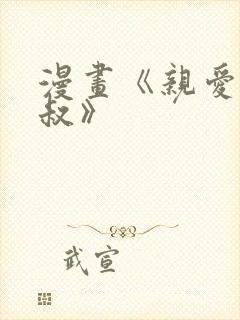 漫畫《親愛
叔》
武宣